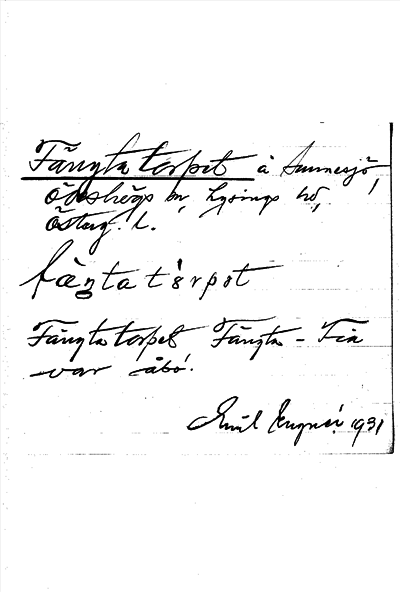 Fängtatorpet å Sunnesjö,
Ödeshögs sn, Lysings hd,
Österg. l.
fäŋtatɷrpət
Fängtatorpet Fängta-Fia
var åbo.
Emil 1931